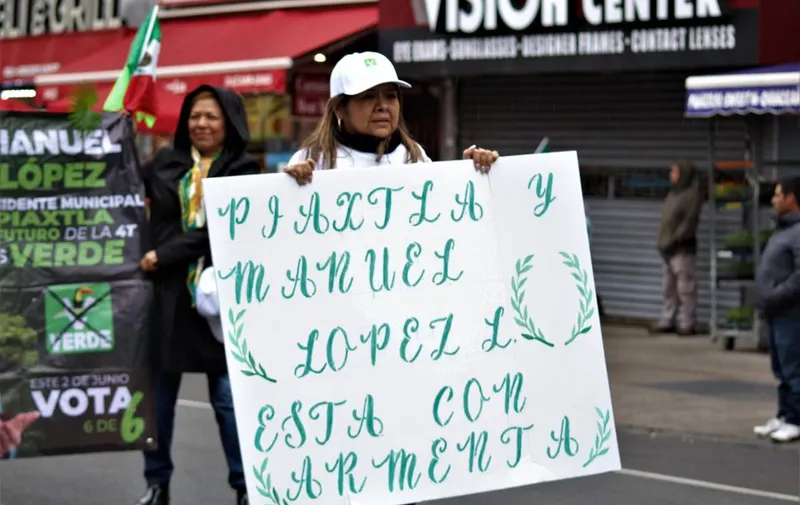 LI & GROCERY
VISION CENTER
EYE EXAMS-SUNGLASSES-DESIGNER FRAMES-CONTACT LENSES
MANUEL
LÓPEZ
PRESIDENTE MUNICIPAL
PIAXTLA
FUTURO DE LA 4T
ES VERDE
VERDE
ESTE 2 DE JUNIO
VOTA
6 DE 6
PIAXTLA Y
MANUEL
LOPEZ L.
ESTA CON
ARMENTA